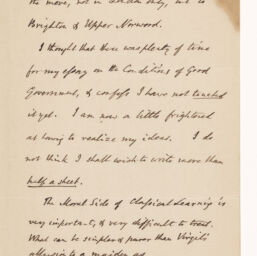 the move, not in London only, but to
Brighton & Upper Norwood.
I thought that there was plenty of time
for my essay on the Conditions of Good
Government, & confess I have not touched
it yet. I am now a little frightened
at having to realize my ideas. I do
not think I shall wish to write more than
half a sheet.
The Moral Side of Classical Learning is
very important, & very difficult to treat.
What can be simpler & purer than Virgil's
allusion to a maiden as